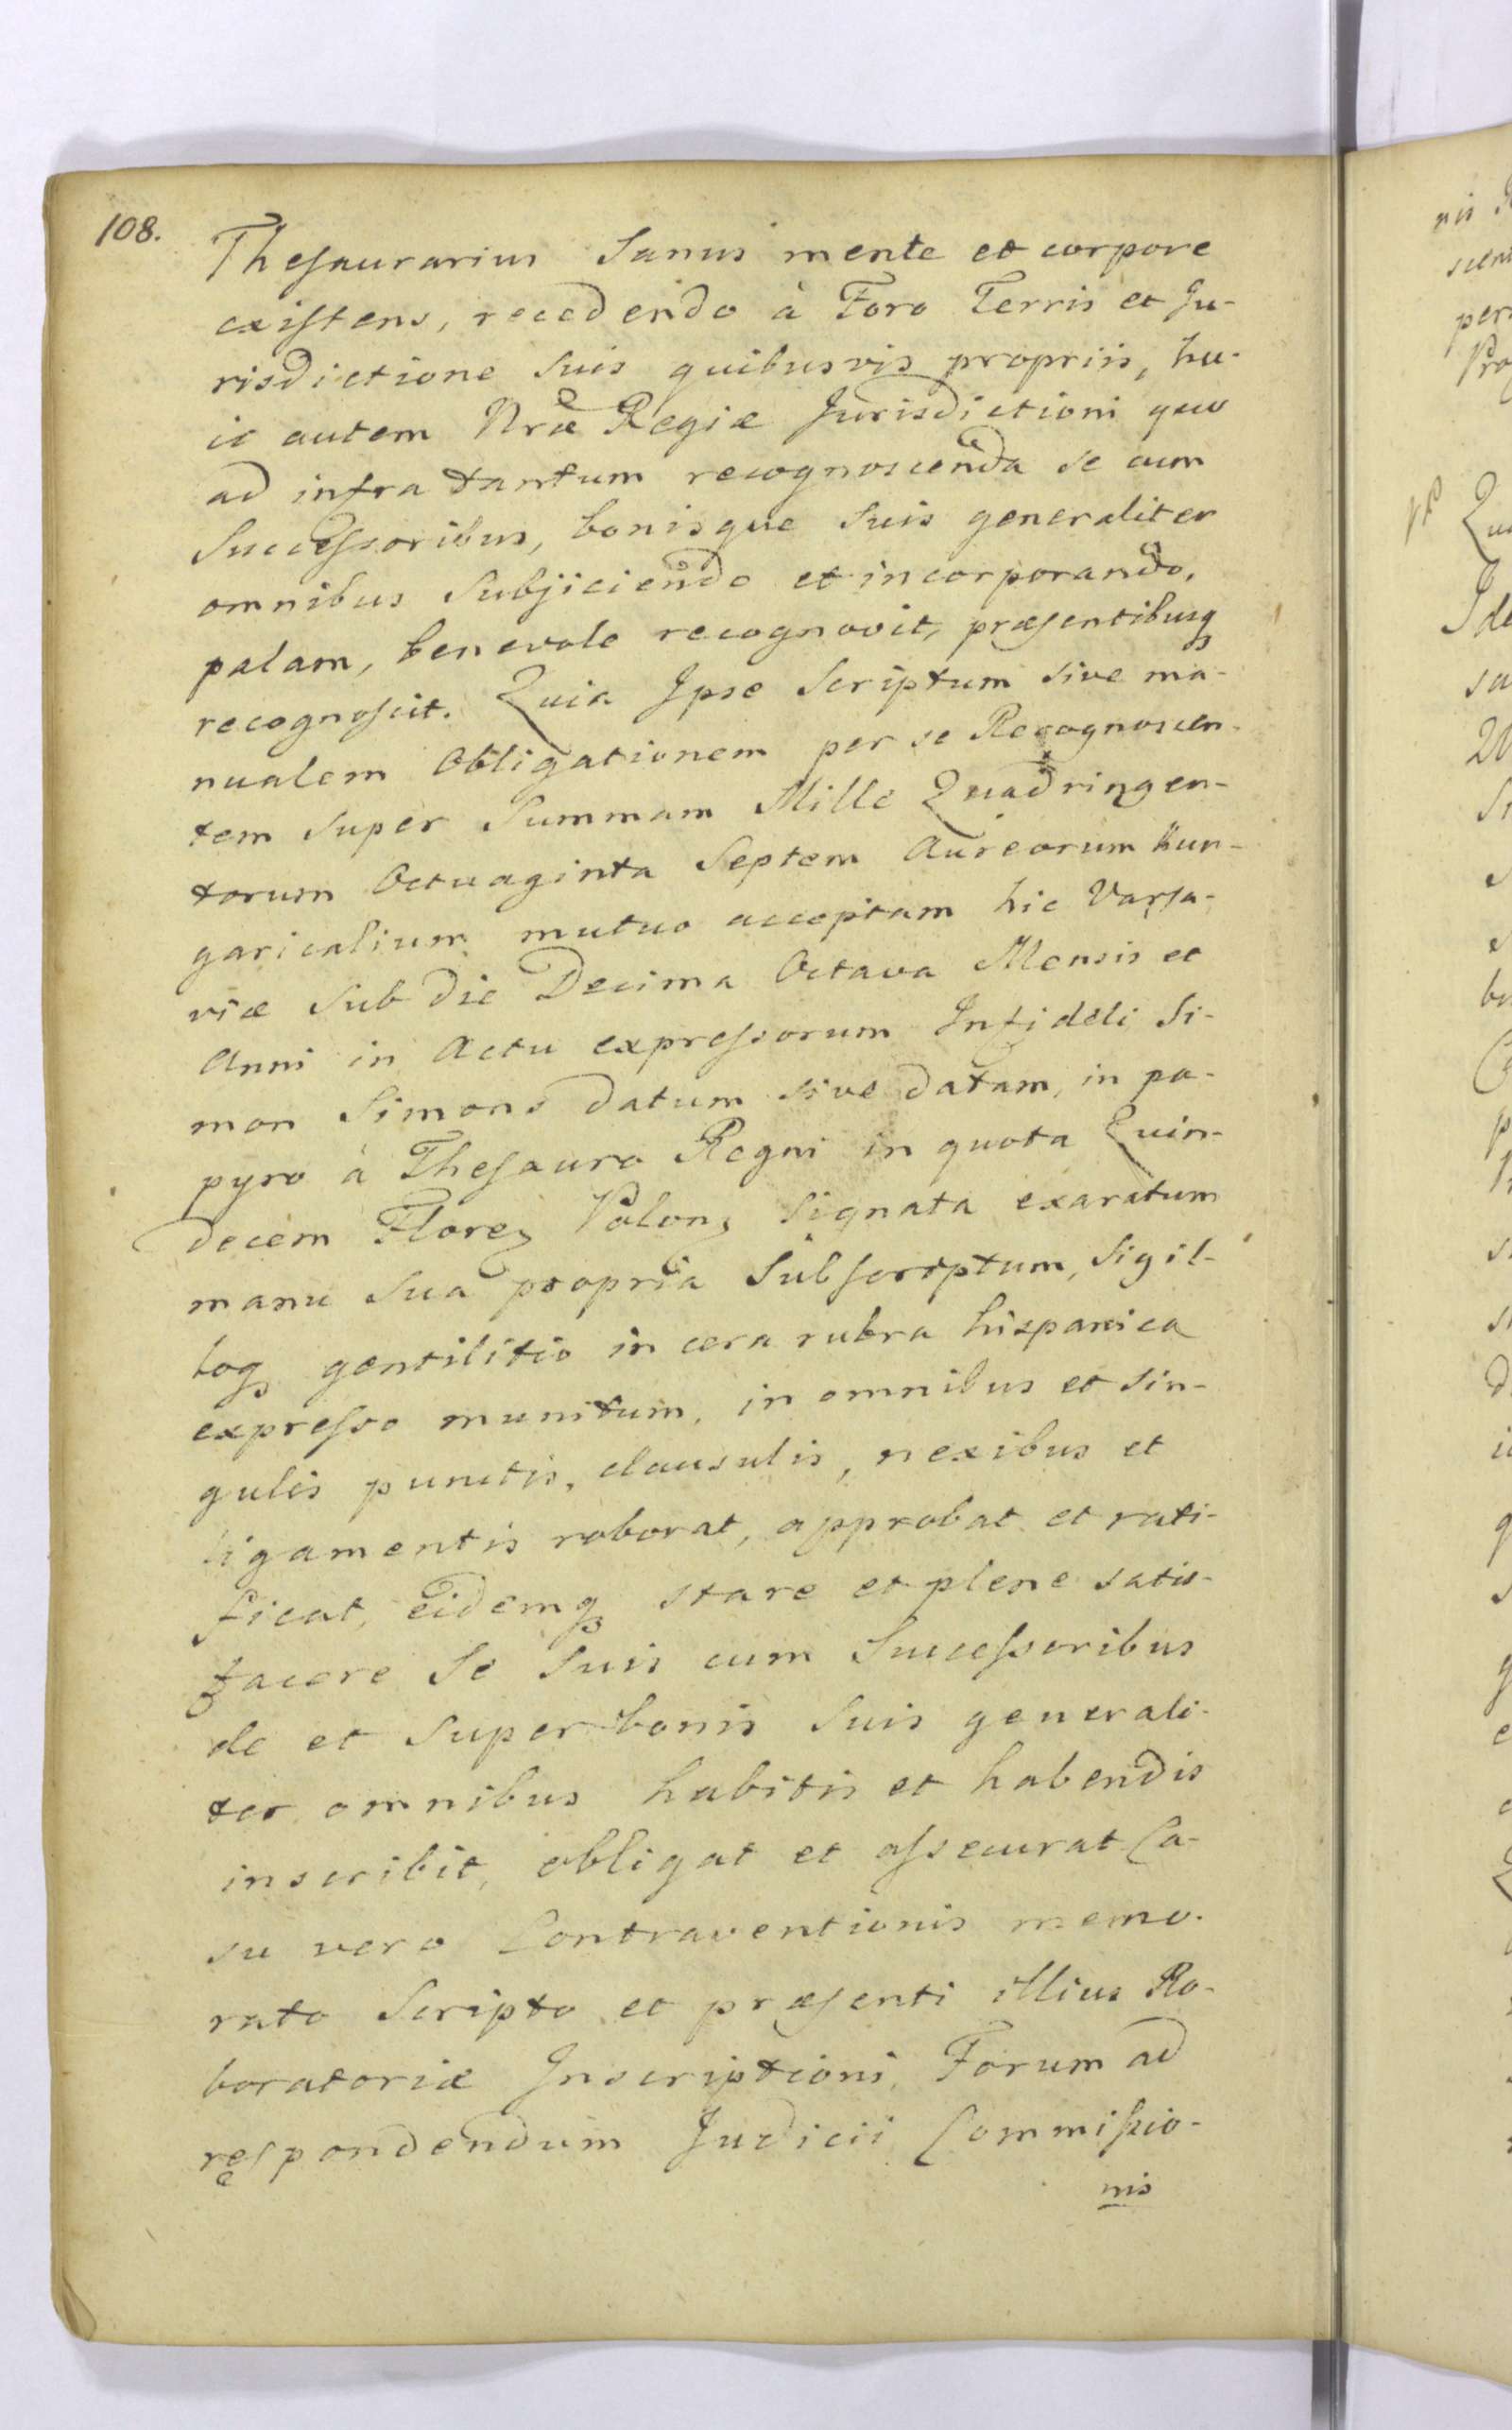 108.
Thesaurarius Sanus mente et corpore
existens, recedendo à Foro Terris et Ju-
risdictione Suis quibusvis propriis, hu-
ic autem Nræ Regiæ Jurisdictioni quo
ad infra tantum recognoscenda se cum
Successoribus, bonisque Suis generaliter
omnibus Subjiciendo et incorporando,
palam, benevole recognovit, præsentibusq
recognoscit. Quia Ipse Scriptum sive ma-
nualem Obligationem per se Recognoscen-
tem Super Summam Mille Quadringen-
torum Octuaginta Septem Aureorum hun-
garicalium mutuo acceptam hic Varsa-
viæ Sub die Decima Octava Mensis et
Anni in Actu expressorum Infideli Si-
mon Simons datum sive datam, in pa-
pyro à Thesauro Regni in quota Quin-
decem Floren Polon, Signata exaratum
manu Sua propria Subscriptum, Sigil-
loq gentilitio in cera rubra hispanica
expresso munitum, in omnibus et Sin-
gulis punctis, clausulis, nexibus et
ligamentis roborat, approbat et rati-
ficat, eidemq stare et plene satis-
facere Se Suis cum Successoribus
de et Super bonis Suis generali-
ter omnibus habitis et habendis
inscribit, obligat et assecurat Ca-
su vero Contraventionis memo-
rato Scripto et præsenti illius Ro-
boratoriæ Inscriptioni, Forum ad
respondendum Judicii Commissio-
nis